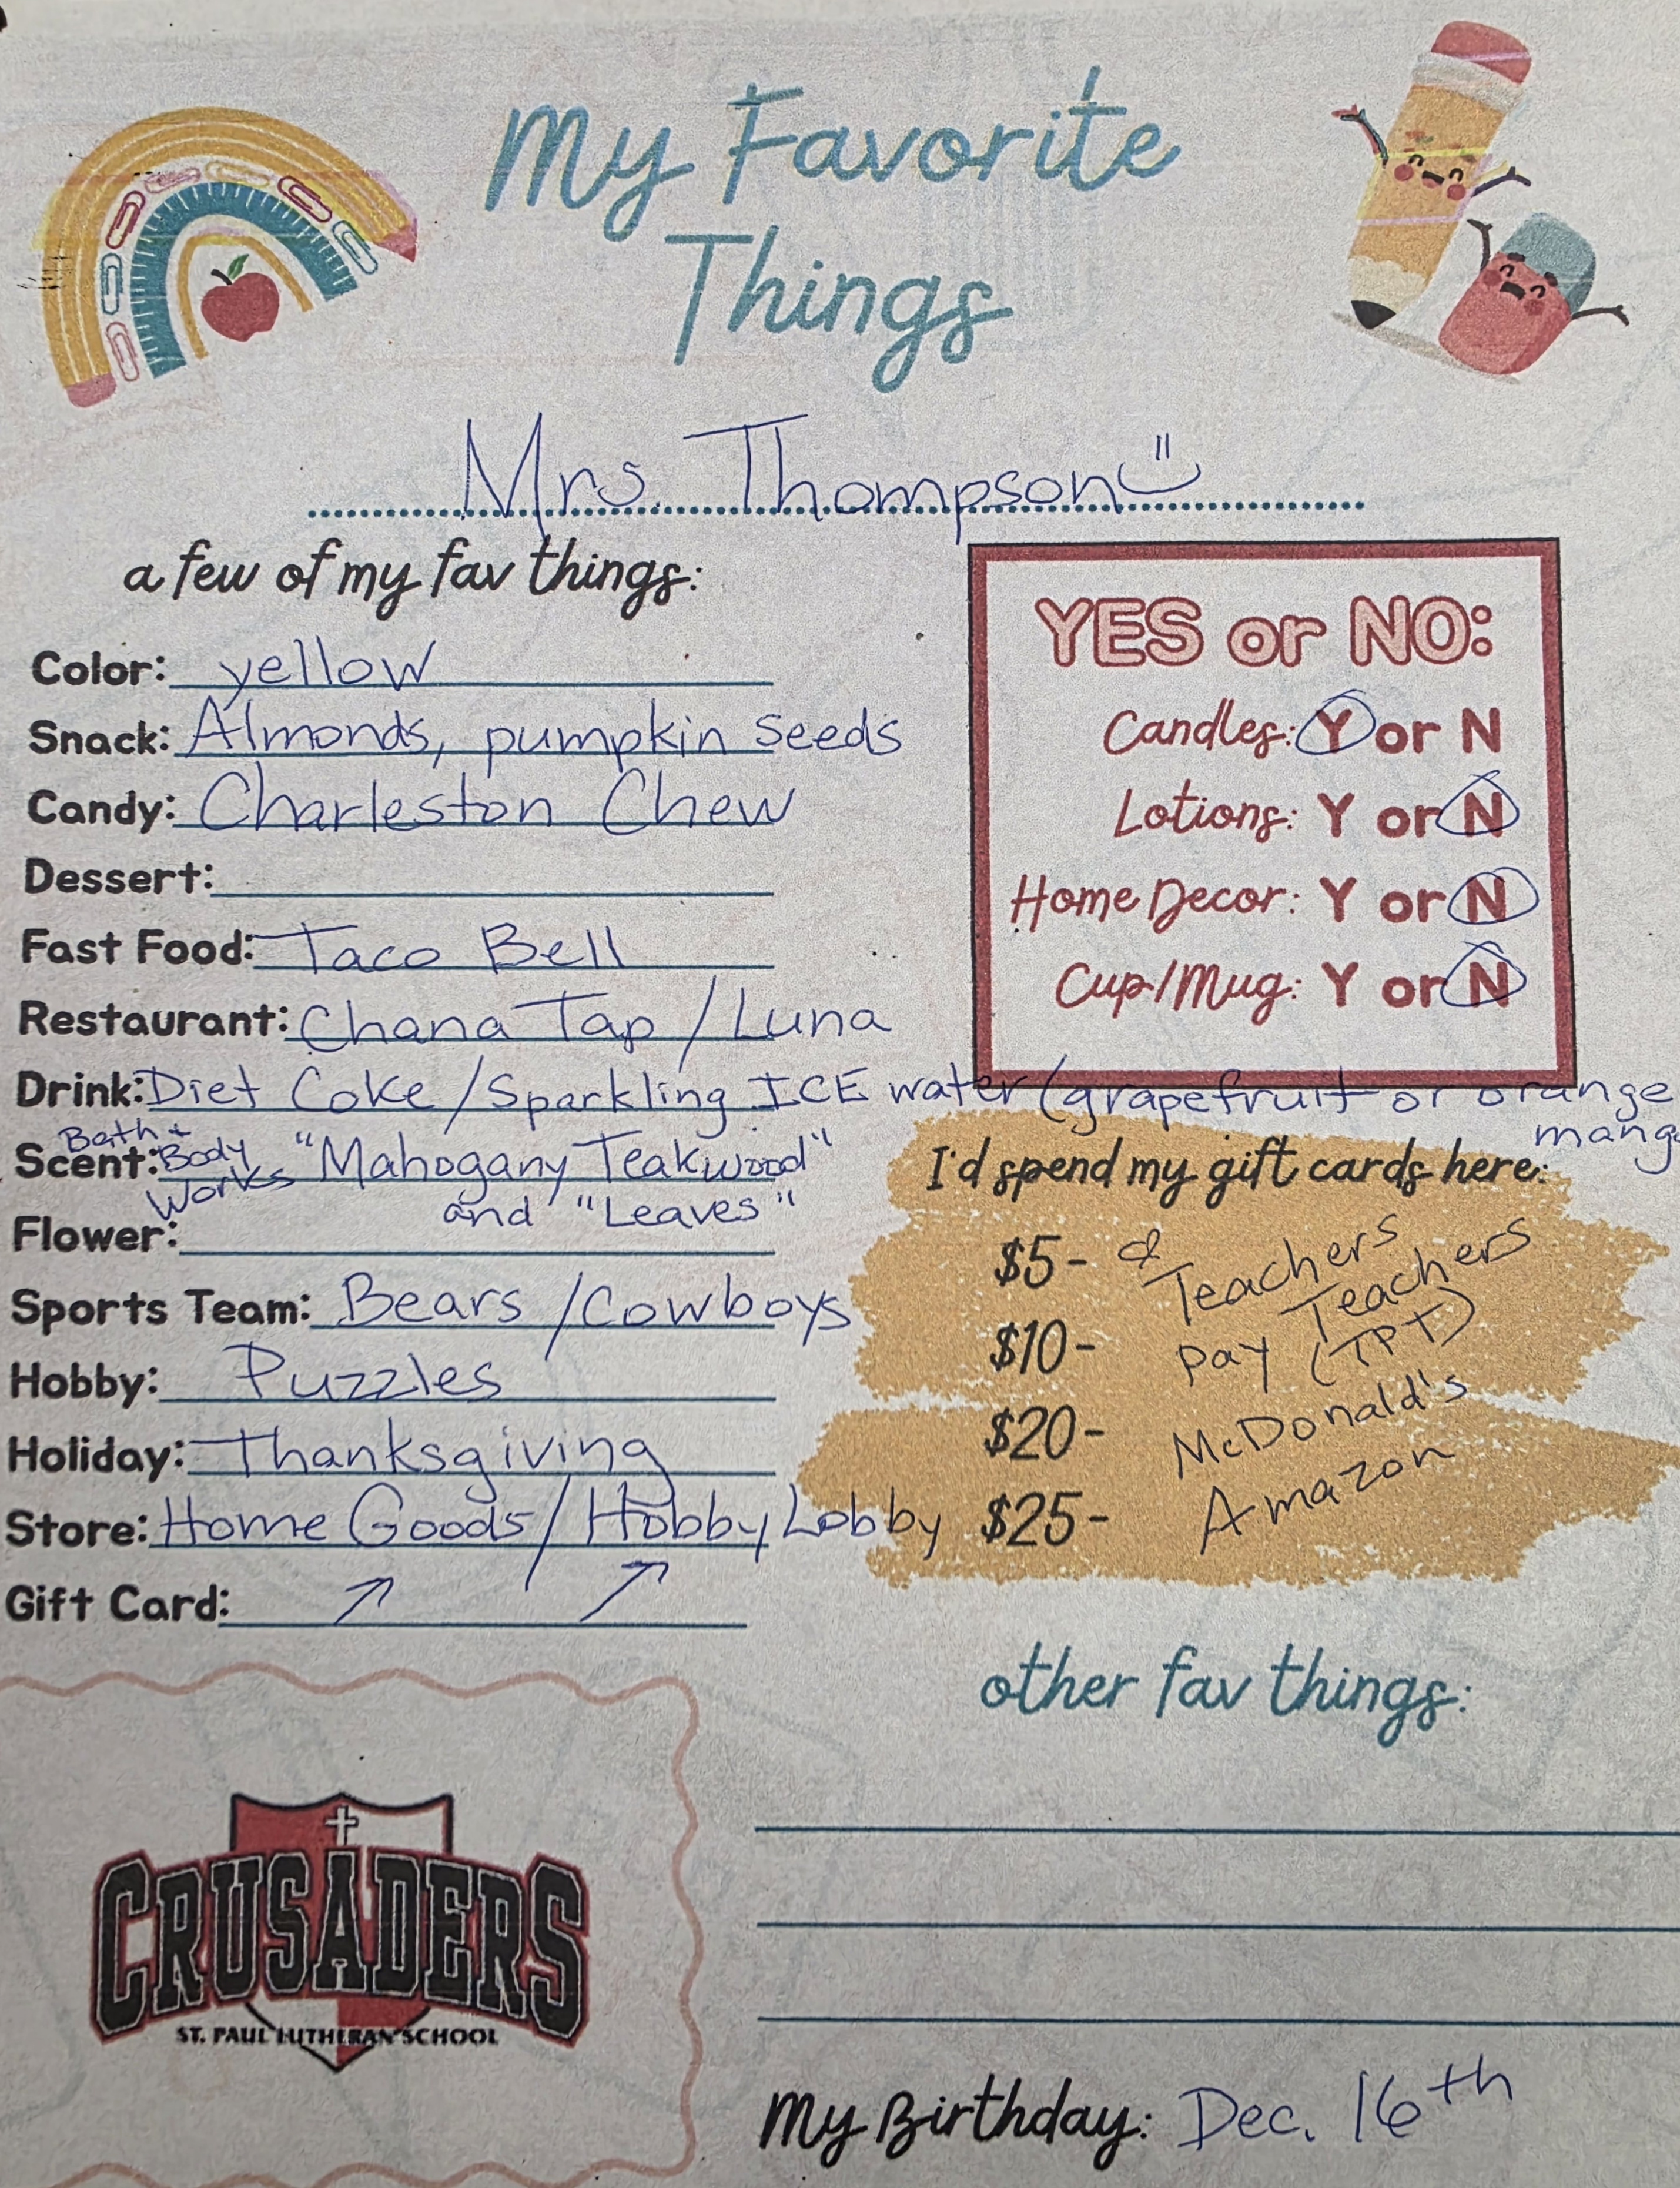 My Favorite
Things
Mrs. Thompson
a few of my fav things:
Color: yellow
Snack: Almonds, pumpkin seeds
Candy: Charleston Chew
Dessert:
Fast Food: Taco Bell
Restaurant: Chana Tap / Luna
Drink: Diet Coke / Sparkling ICE water (grapefruit or orange
mang
Scent: Bath + Body Works "Mahogany Teakwood"
and "Leaves"
Flower:
Sports Team: Bears / Cowboys
Hobby: Puzzles
Holiday: Thanksgiving
Store: Home Goods / Hobby Lobby
Gift Card: ↗ ↗
YES or NO:
Candles: Y or N
Lotions: Y or N
Home Decor: Y or N
Cup/Mug: Y or N
I'd spend my gift cards here:
$5- Teachers
$10- pay Teachers
(TPT)
$20- McDonald's
$25- Amazon
other fav things:
CRUSADERS
ST. PAUL LUTHERAN SCHOOL
My Birthday: Dec. 16th